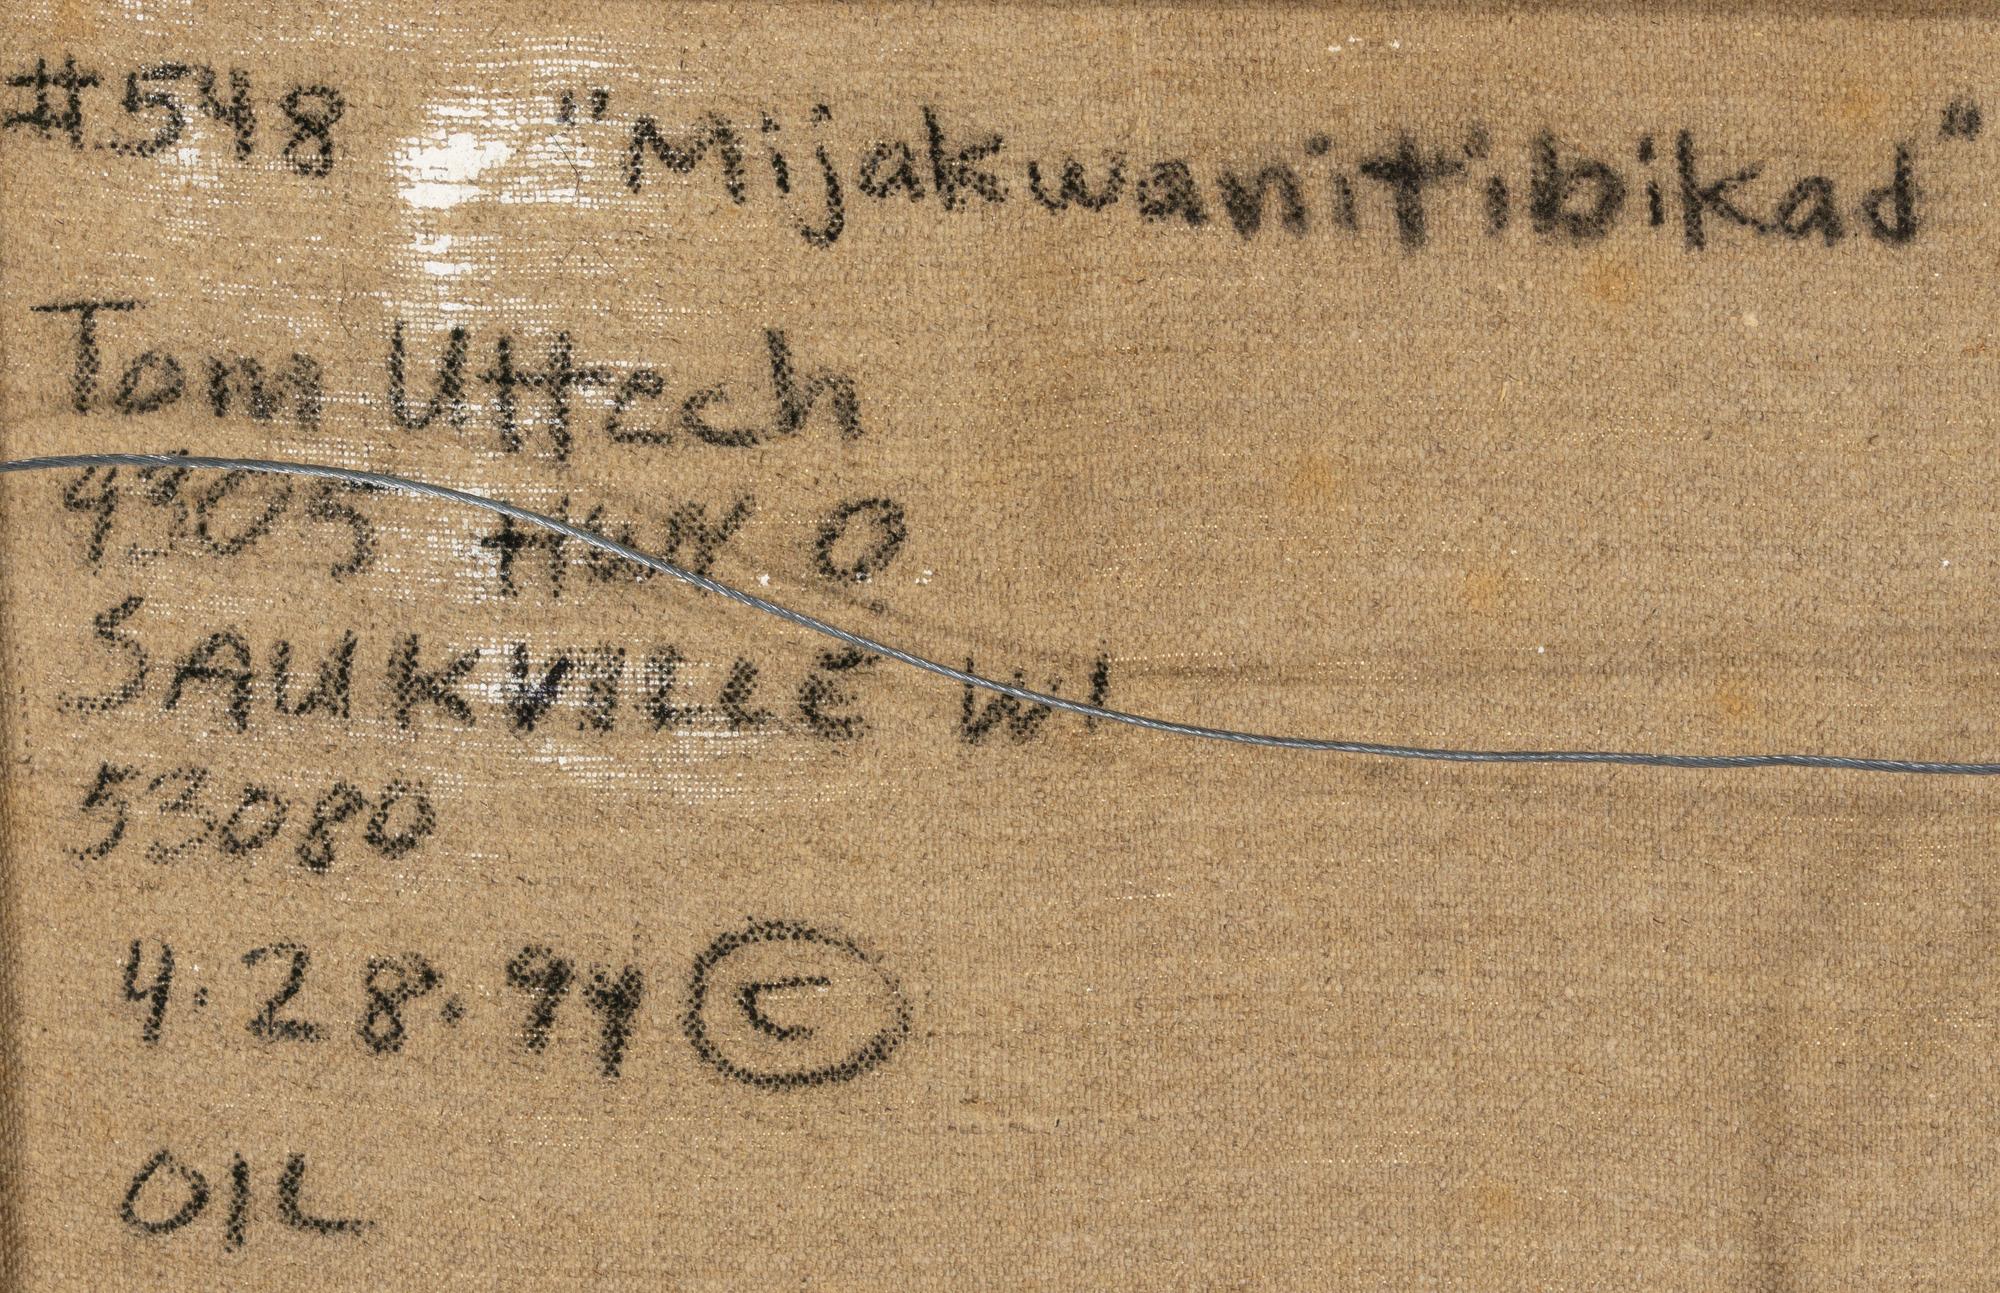 #548 "Mijakwanitibikad"
Tom Uttech
4305 Hwy O
SAUKVILLE WI
53080
4·28·94 ©
OIL